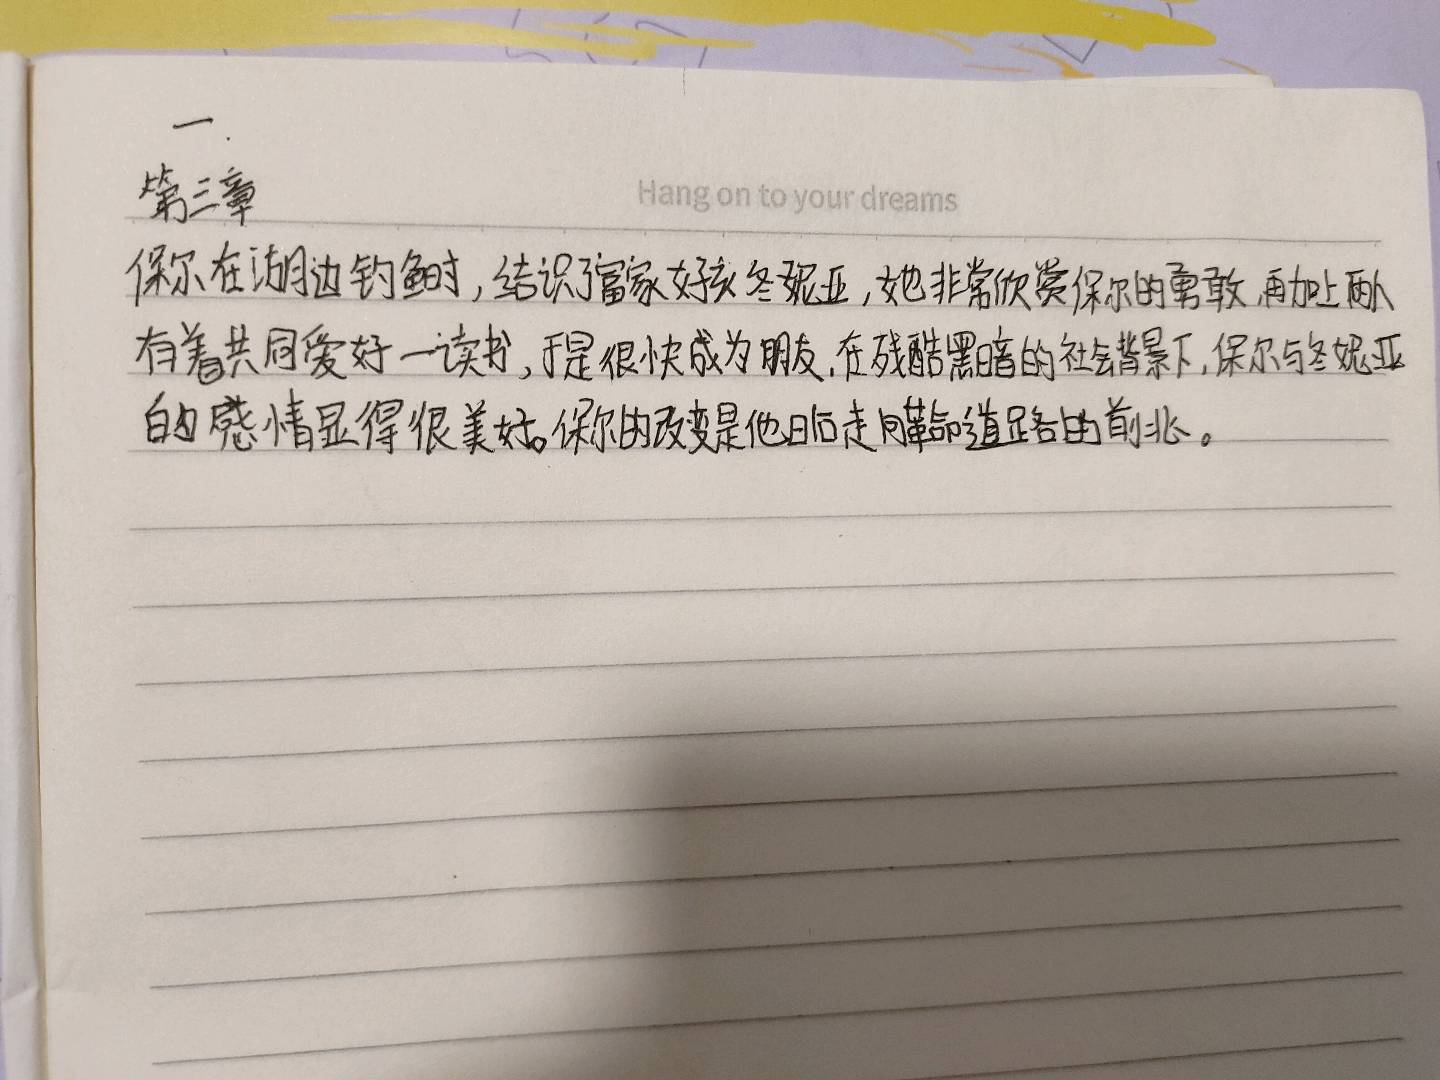 一.
第三章
Hang on to your dreams
保尔在湖边钓鱼时,结识了富家女孩冬妮亚,她非常欣赏保尔的勇敢,再加上两人
有着共同爱好一读书,于是很快成为朋友,在残酷黑暗的社会背景下,保尔与冬妮亚
的感情显得很美好。保尔的改变是他日后走向革命道路的前兆。